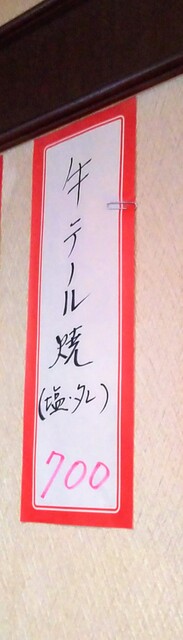 牛テール焼
(塩・タレ)
700